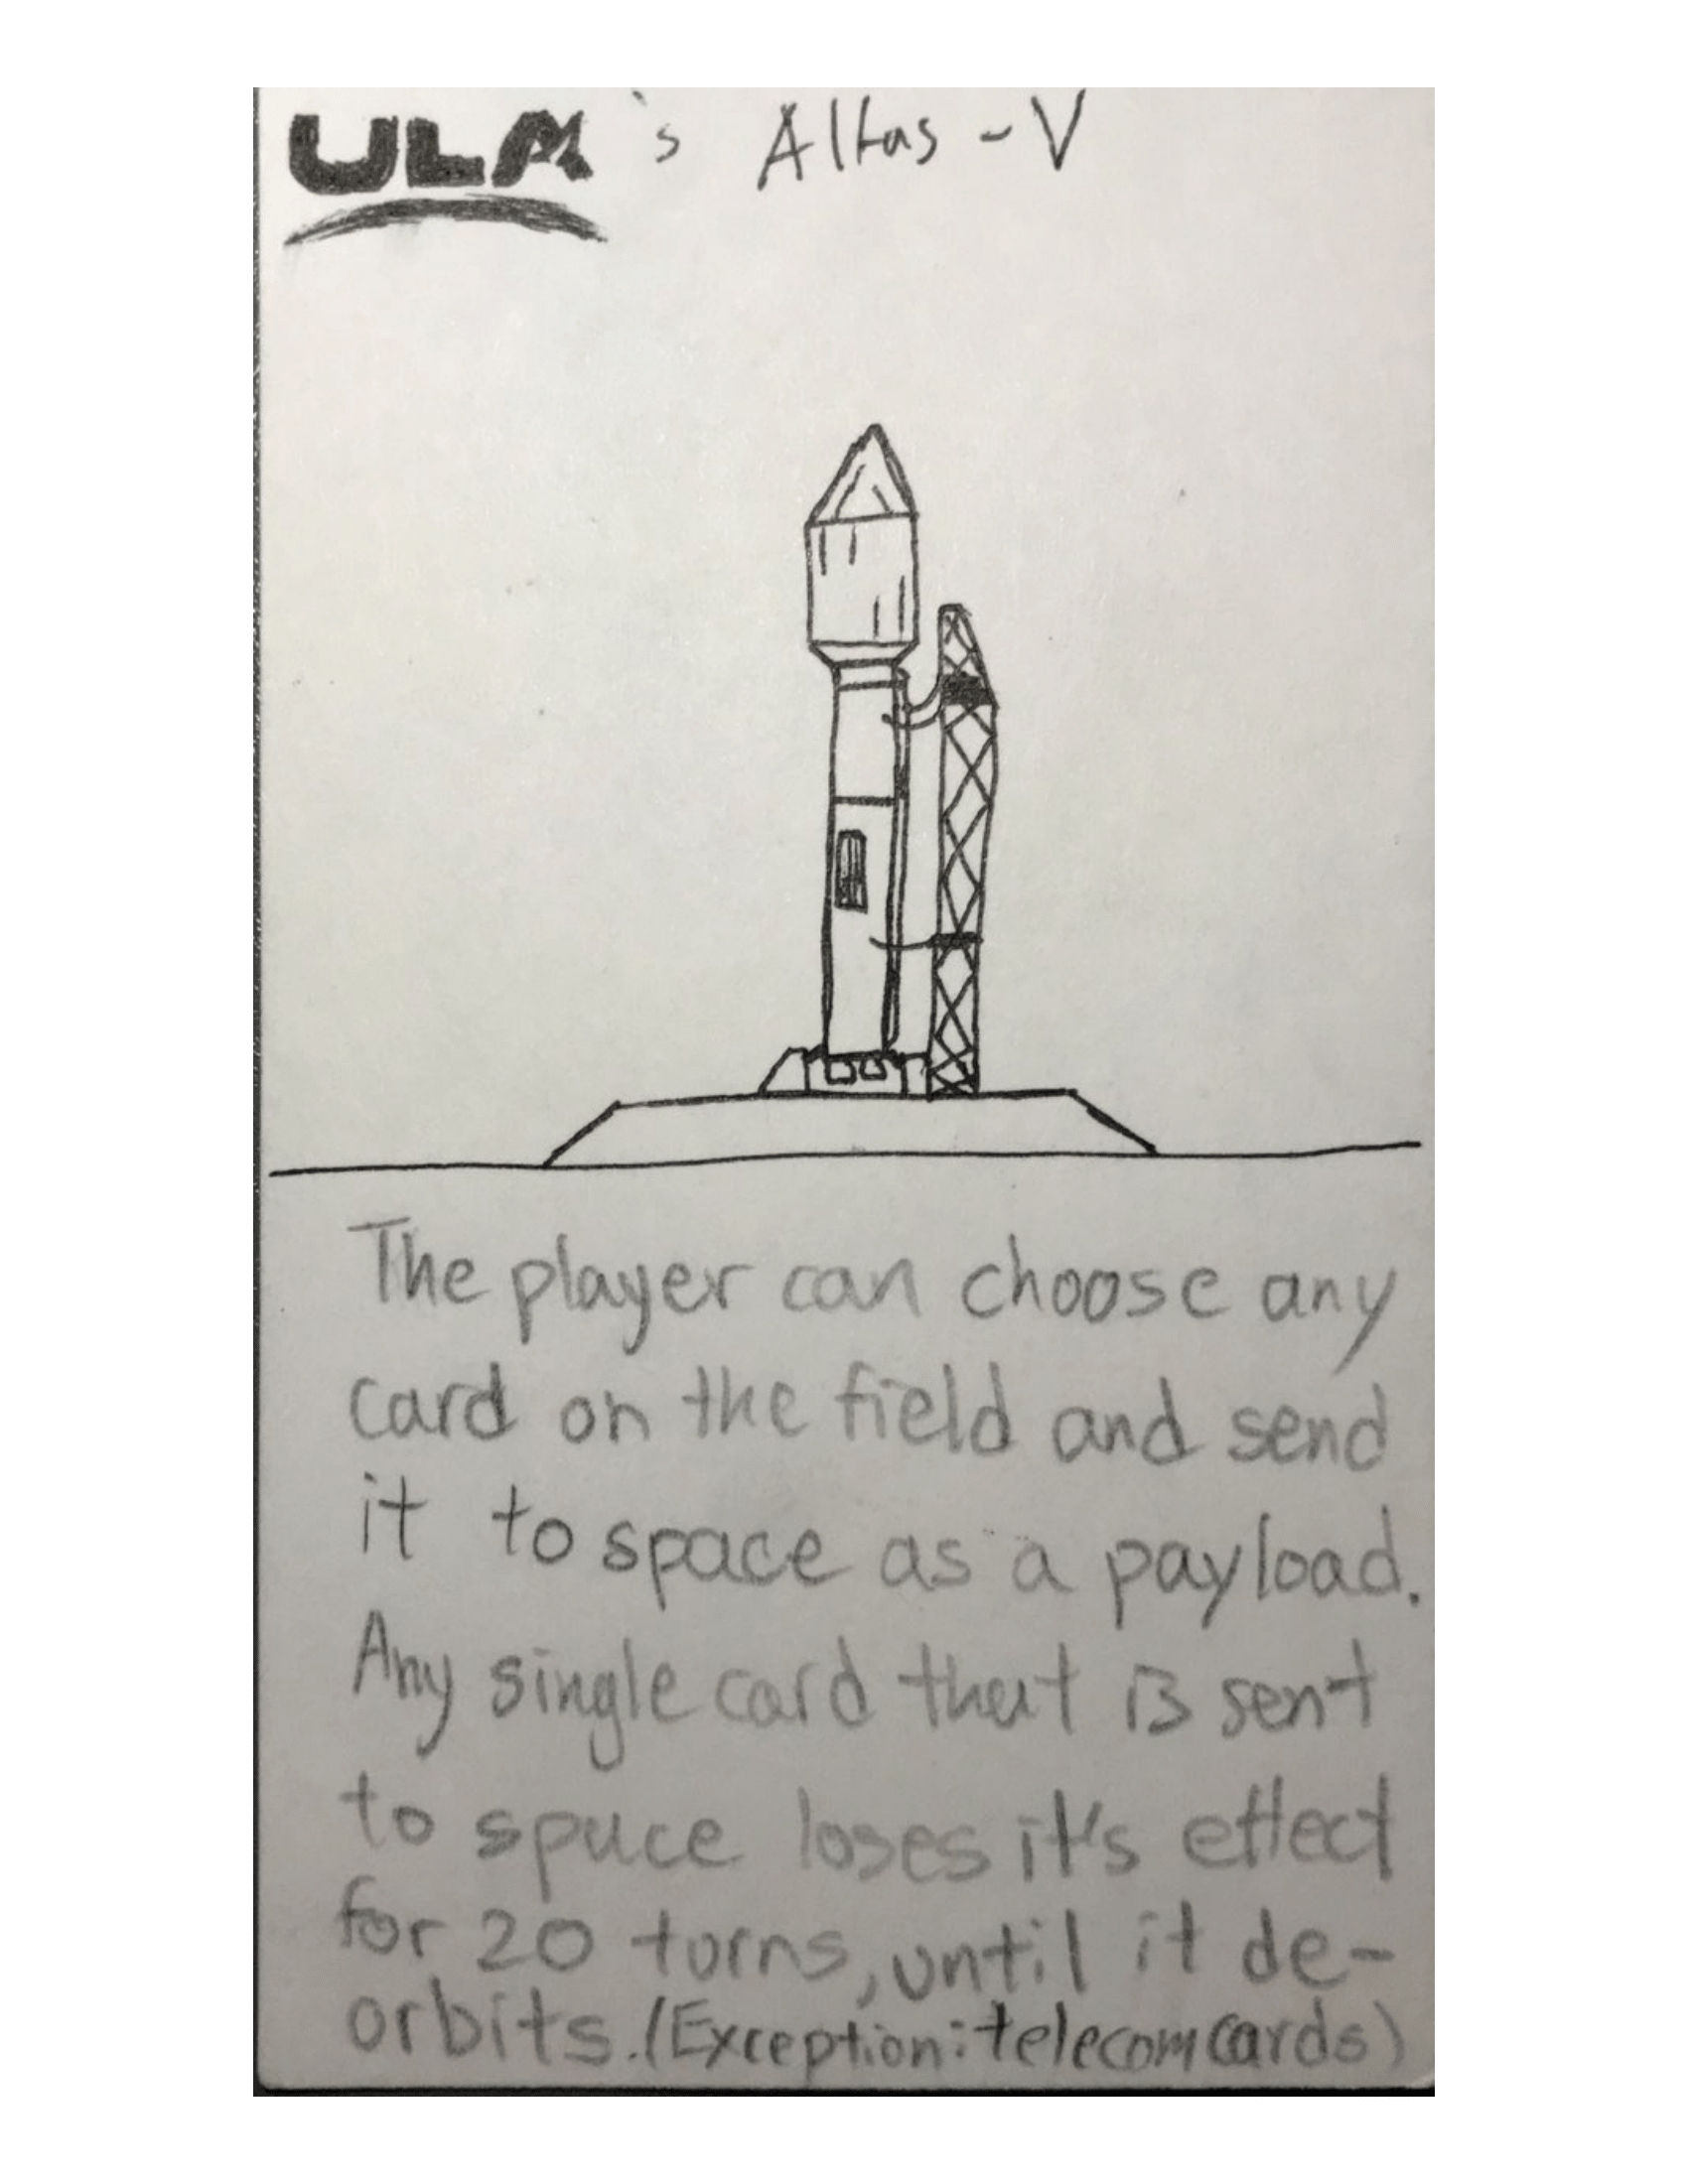 ULA's Altas-V
The player can choose any
card on the field and send
it to space as a payload.
Any single card that is sent
to space loses it's effect
for 20 turns, until it de-
orbits. (Exception: telecom cards)